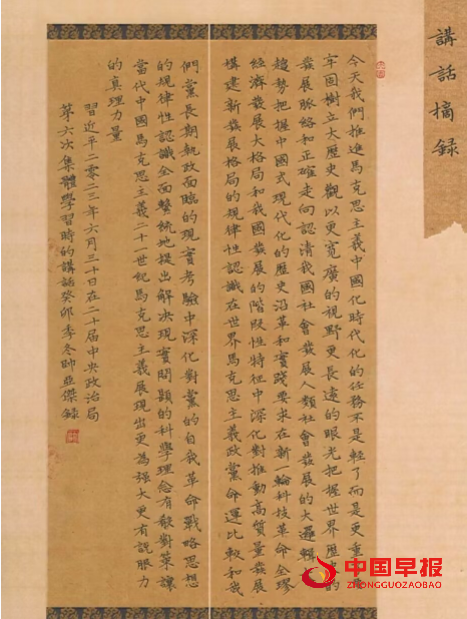 講話摘錄
今天我們推進馬克思主義中國化時代化的任務不是輕了而是更重了
牢固樹立大歷史觀以更寬廣的視野更長遠的眼光把握世界歷史的
發展脈絡和正確走向認清我國社會發展人類社會發展的大邏輯
趨勢把握中國式現代化的歷史沿革和實踐要求在新一輪科技革命全球
經濟發展大格局和我國發展的階段性特徵中深化對推動高質量發展
構建新發展格局的規律性認識在世界馬克思主義政黨命運比較和我
們黨長期執政面臨的現實考驗中深化對黨的自我革命戰略思想
的規律性認識全面整統地提出解決現實問題的科學理念有效對策讓
當代中國馬克思主義二十一世紀馬克思主義展現出更為强大更有說服力
的真理力量
習近平二零二三年六月三十日在二十屆中央政治局
第六次集體學習時的講話癸卯季冬帥亞傑錄
中国早报
ZHONGGUOZAOBAO